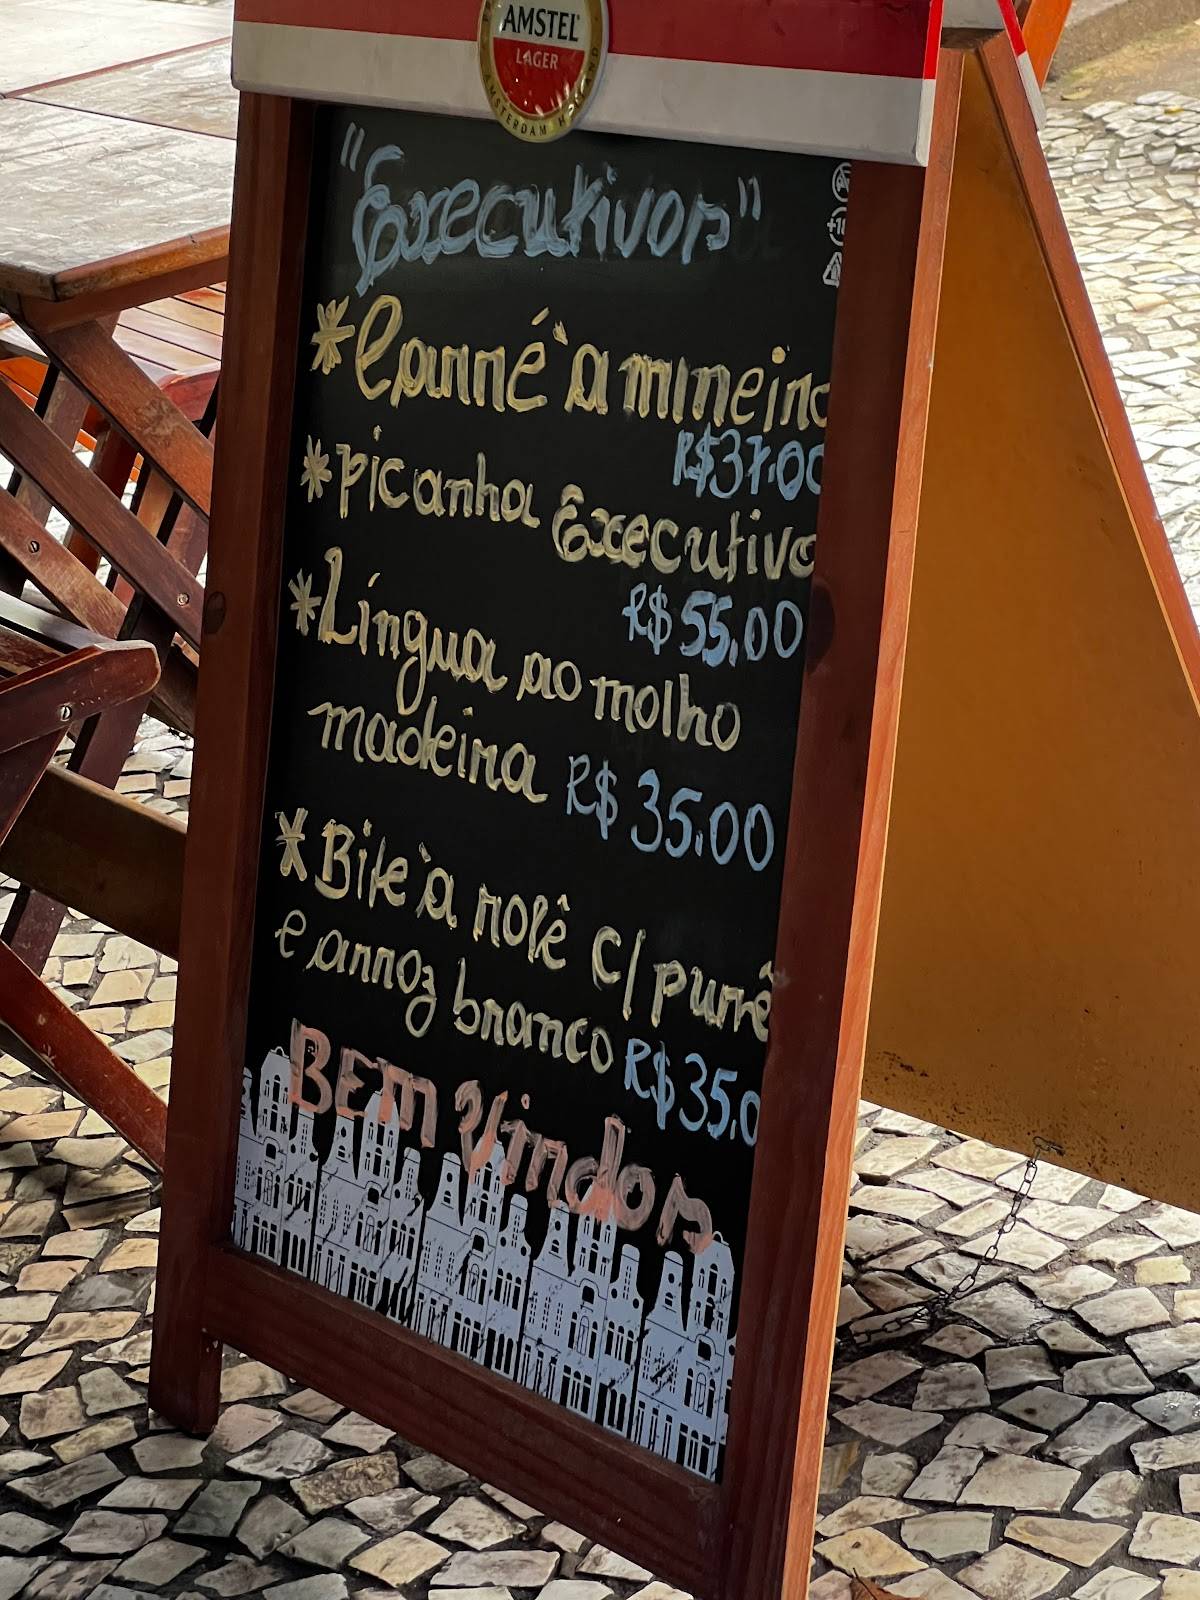 AMSTEL
LAGER
AMSTERDAM
"Executivos"
+18
*Carré à mineiro
R$37,00
*Picanha Executivo
R$55,00
*Língua ao molho
madeira R$ 35,00
*Bife à rolê c/ purrê
e arroz branco R$35,0
BEM Vindos